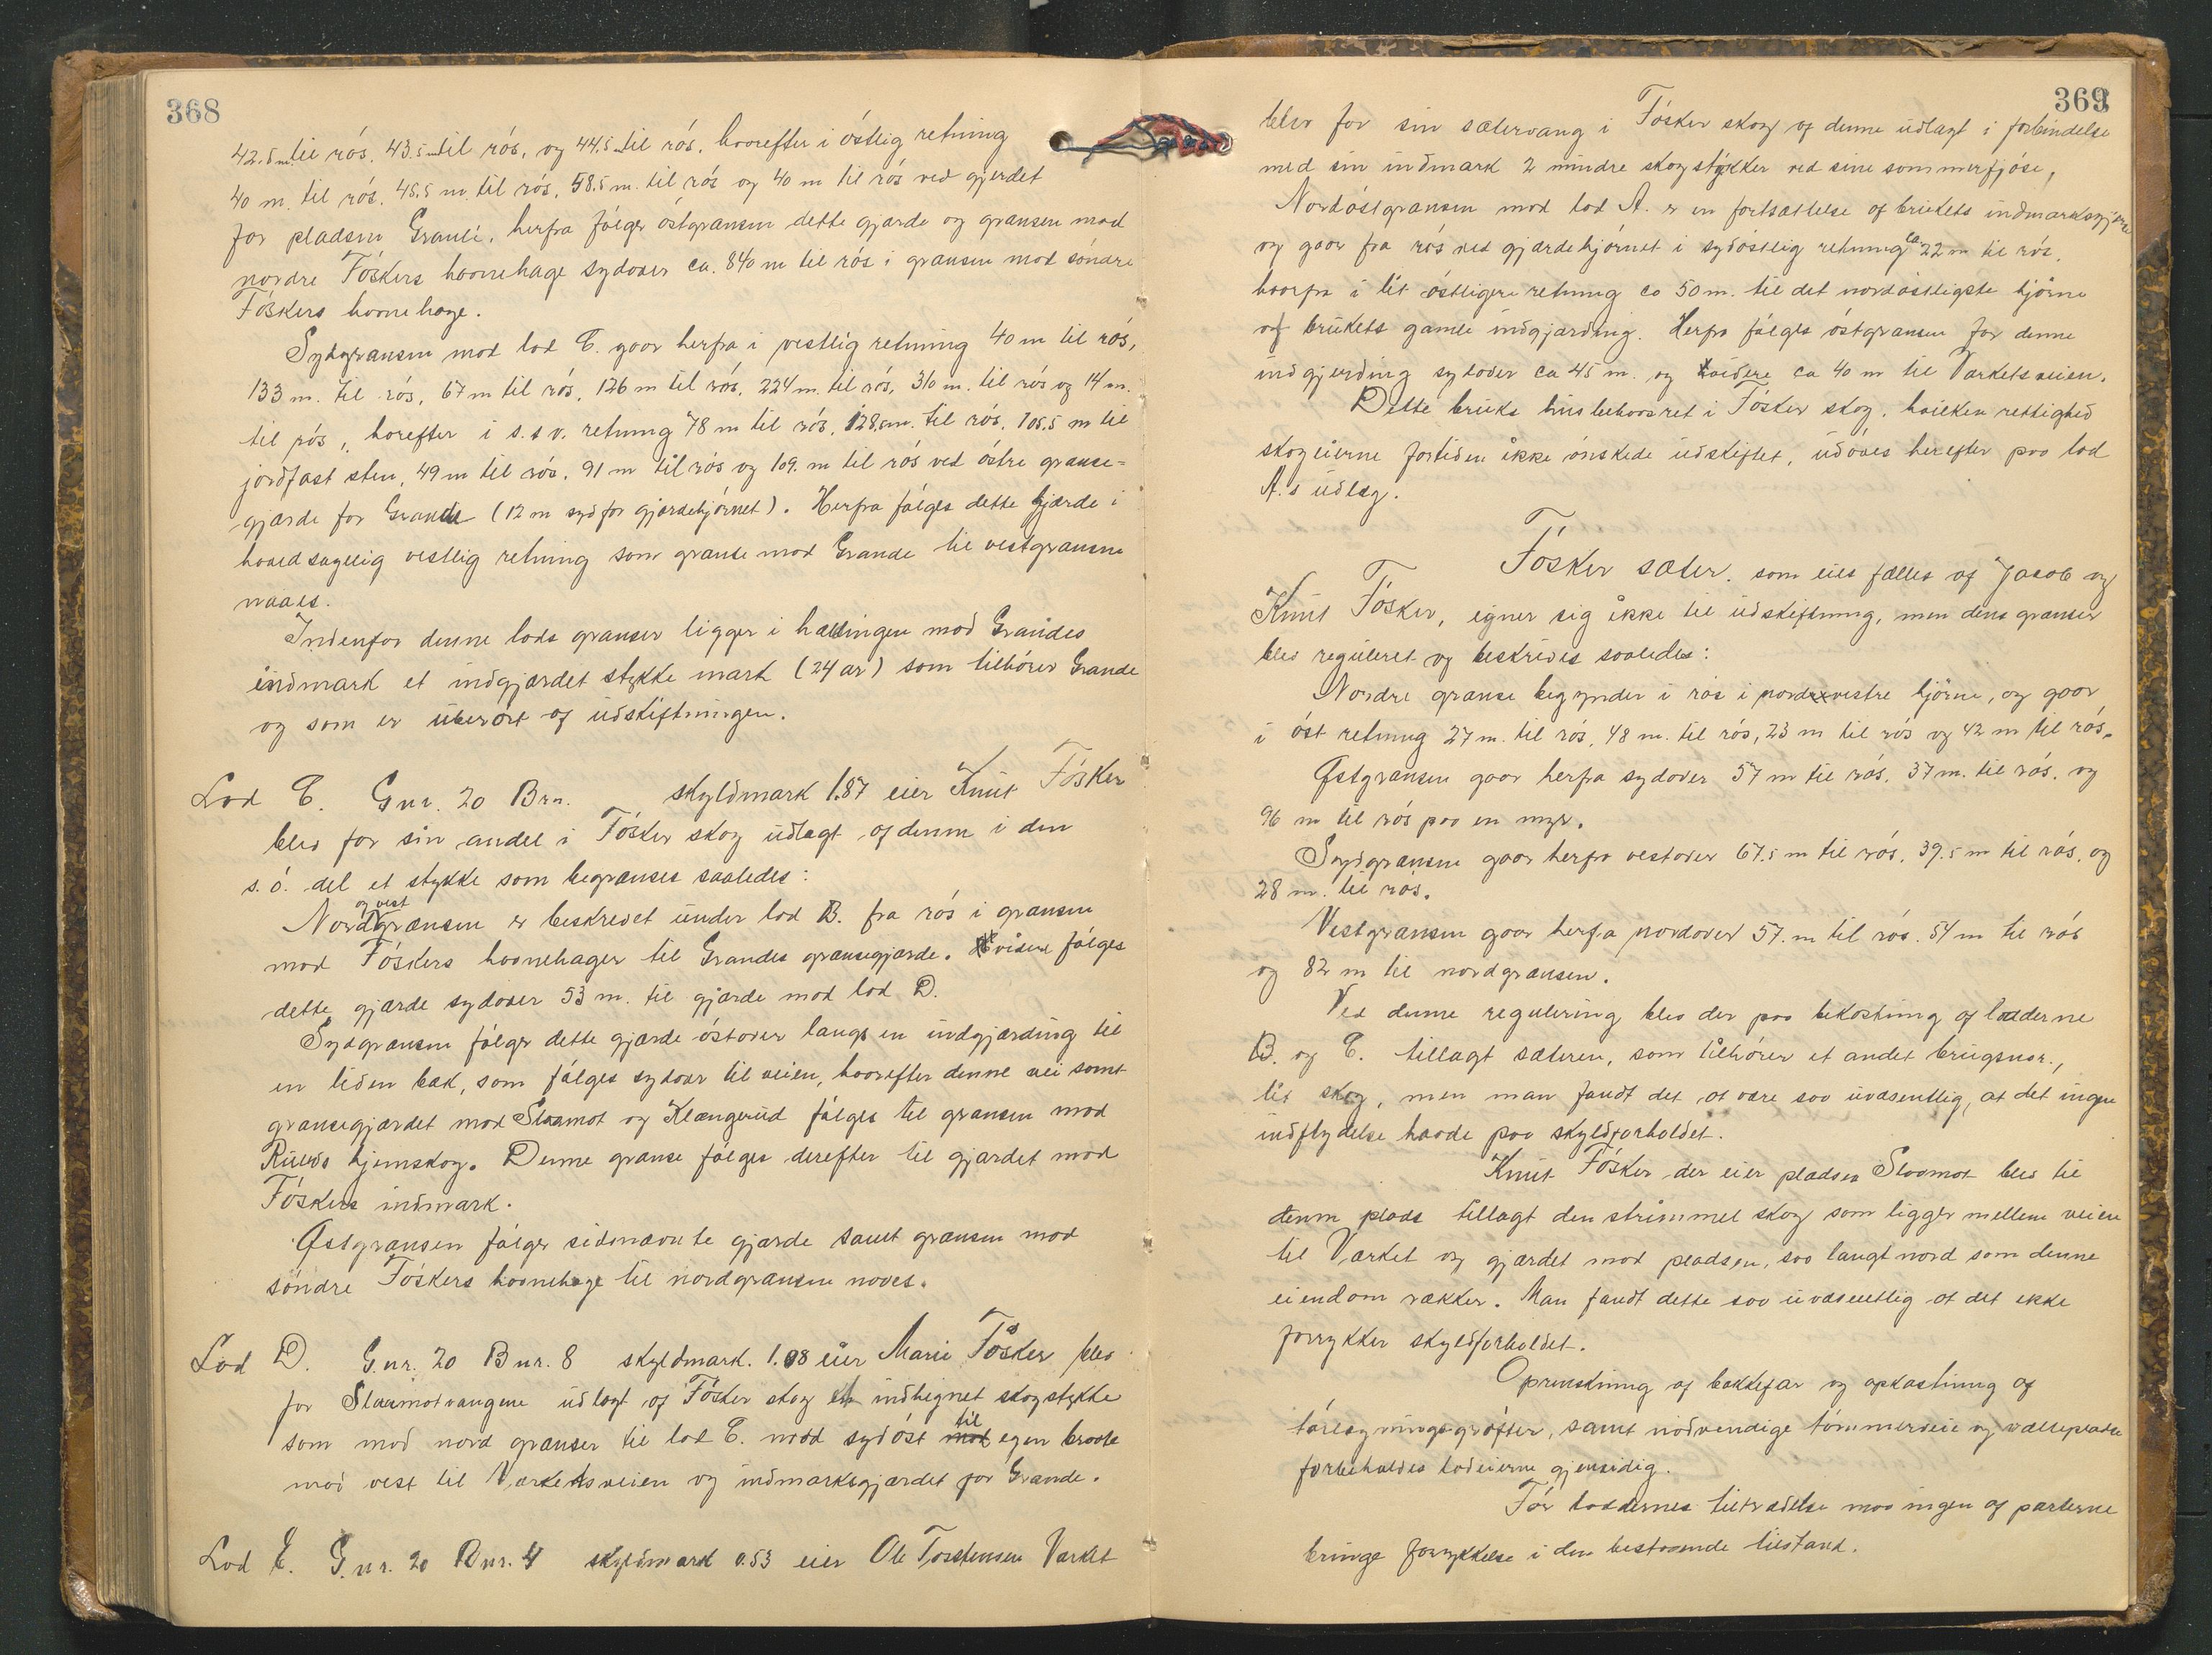 368
42.5 m til rós, 43.5 m til rós, og 44.5 m til rós, hvorefter i óstlig retning
40 m. til rós, 45.5 m til rós, 58.5 m. til rós og 40 m til rós ved gjerdet
for pladsen Granli, herfra fólger óstgrænsen dette gjærde og grænsen mod
nordre Fóskers havnehage sydover ca. 840 m til rós i grænsen mod söndre
Fóskers havnehage.
Sydgrænsen mod lod C. gaar herfra i vestlig retning 40 m til rós,
133 m. til rós, 67 m til rós, 126 m til rós, 224 m. til rós, 310 m. til rós og 14 m.
til rós, horefter i s.s.v. retning 78 m til rós, 128.5 m. til rós, 105.5 m til
jordfast sten, 49 m til rós, 91 m til rós og 109. m til rós ved óstre grænse-
gjærde for Grande (12 m syd for gjærdehjórnet). Herfra fólges dette gjærde i
hovedsagelig vestlig retning som grænse mod Grande til vestgrænsen
naaes.
Indenfor denne lods grænser ligger i hældingen mod Grandes
indmark et indgjærdet stykke mark (24 ar) som tilhórer Grande
og som er uberórt af udskiftningen.
Lod C. Gnr. 20 Brn. skyldmark 1.87 eier Knut Fósker
blev for sin andel i Fósker skog udlagt af denne i den
s.ó. del et stykke som begrænses saaledes:
og vest
Nordgrænsen er beskrevet under lod B. fra rós i grænsen
mod Fóskers havnehager til Grandes grænsegjærde. Videre fólges
dette gjærde sydover 53 m. til gjærde mod lod D.
Sydgrænsen fólger dette gjærde óstover langs en indgjærding til
en liden bæk, som fólges sydover til veien, hvorefter denne vei samt
grænsegjærdet mod Slaamot og Klængerud fólges til grænsen mod
Ruuds hjemskog. Denne grænse fólges derefter til gjærdet mod
Fóskers indmark.
Østgrænsen fólger sidnævnte gjærde samt grænsen mod
söndre Fóskers havnehage til nordgrænsen naaes.
Lod D. G.nr. 20 Bnr. 8 skyldmark. 1.08 eier Marie Fósker blev
for Slaamotvangene udlagt af Fósker skog et indhegnet skogstykke
som mod nord grænser til lod C. mod sydóst til mod egen braate
mod vest til Værketsveien og indmarksgjærdet for Grande.
Lod E. G.nr. 20 Bnr. 4 skyldmark 0.53 eier Ole Torstensen Værket
369
blev for sin sætervang i Fósker skog af denne udlagt i forbindelse
med sin indmark 2 mindre skogstykker ved sine sommerfjóse,
Nordóstgrænsen mod lod A. er en fortsættelse af brukets indmarksgjære
og gaar fra rós ved gjærdehjórnet i sydóstlig retning ca 22 m til rós,
hvorfra i lit óstligere retning ca 50 m. til det nordóstligste hjórne
af brukets gamle indgjærding. Herfra fólges óstgrænsen for denne
indgjerding sydover ca 45 m. og videre ca 40 m til Værketsveien.
Dette bruks husbehovsret i Fósker skog, hvilken rettighed
skogeierne fortiden ikke ónskede udskiftet, udóves herefter paa lod
A.s udlæg.
Fósker sæter. som eies fælles af Jacob og
Knut Fósker, egner sig ikke til udskiftning, men dens grænser
blev reguleret og beskrives saaledes:
Nordre grænse begynder i rós i nordvestre hjórne, og gaar
i óst retning 27 m. til rós, 48 m. til rós, 23 m til rós og 42 m til rós.
Østgrænsen gaar herfra sydover 57 m til rós, 37 m. til rós, og
96 m til rós paa en myr.
Sydgrænsen gaar herfra vestover 67.5 m til rós, 39.5 m til rós, og
28 m. til rós.
Vestgrænsen gaar herfra nordover 57. m til rós. 54 m til rós
og 82 m til nordgrænsen.
Ved denne regulering blev der paa bekostning af lodderne
B. og C. tillagt sæteren, som tilhórer et andet brugsnor.,
lit skog, men man fandt det at være saa uvæsentlig, at det ingen
indflydelse havde paa skyldforholdet.
Knut Fósker der eier pladsen Slaamot blev til
denne plads tillagt den strimmel skog som ligger mellem veien
til Værket og gjærdet mod pladsen, saa langt nord som denne
eiendom rækker. Man fandt dette saa uvæsentlig at det ikke
forrykker skyldforholdet.
Oprenskning af bækkefar og opkastning af
tórlægningsgrófter, samt nódvendige tómmerveie og vælteplasse
forbeholdes lodeierne gjensidig.
Fór loddernes tiltrædelse maa ingen af parterne
bringe forrykkelse i den bestaaende tilstand.